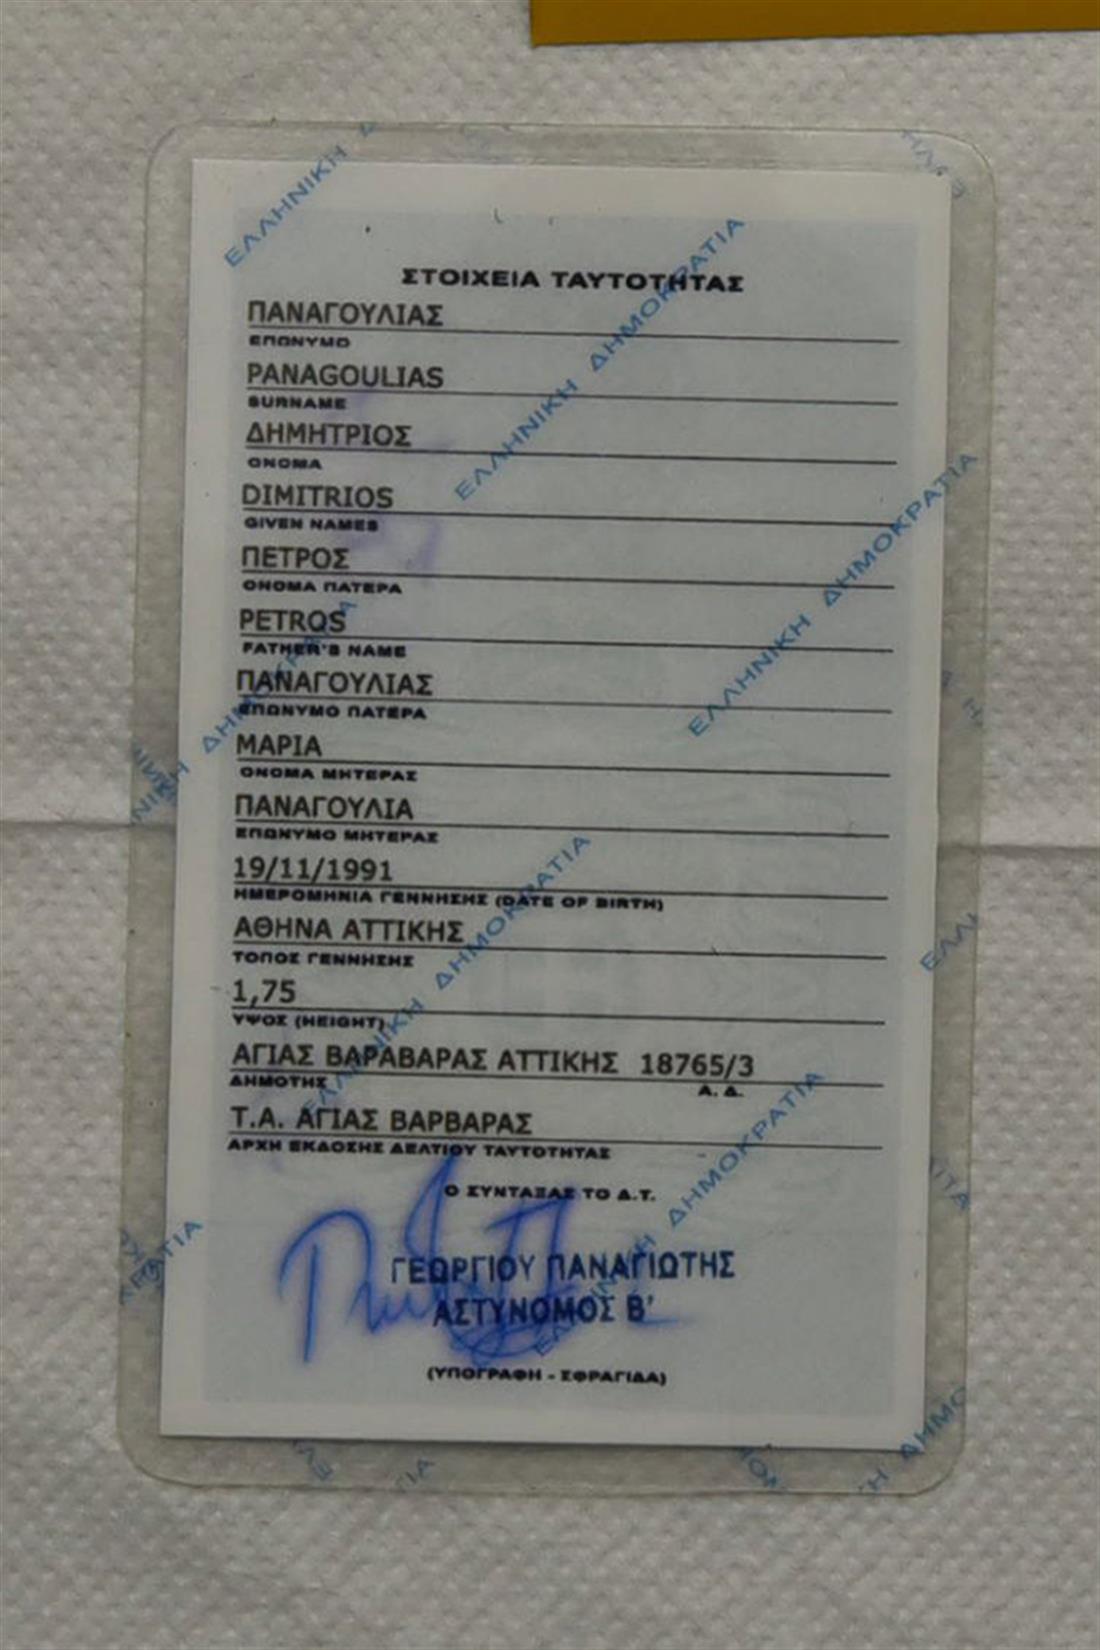 ΣΤΟΙΧΕΙΑ ΤΑΥΤΟΤΗΤΑΣ
ΠΑΝΑΓΟΥΛΙΑΣ
ΕΠΩΝΥΜΟ
PANAGOULIAS
SURNAME
ΔΗΜΗΤΡΙΟΣ
ΟΝΟΜΑ
DIMITRIOS
GIVEN NAMES
ΠΕΤΡΟΣ
ΟΝΟΜΑ ΠΑΤΕΡΑ
PETROS
FATHER'S NAME
ΠΑΝΑΓΟΥΛΙΑΣ
ΕΠΩΝΥΜΟ ΠΑΤΕΡΑ
ΜΑΡΙΑ
ΟΝΟΜΑ ΜΗΤΕΡΑΣ
ΠΑΝΑΓΟΥΛΙΑ
ΕΠΩΝΥΜΟ ΜΗΤΕΡΑΣ
19/11/1991
ΗΜΕΡΟΜΗΝΙΑ ΓΕΝΝΗΣΗΣ (DATE OF BIRTH)
ΑΘΗΝΑ ΑΤΤΙΚΗΣ
ΤΟΠΟΣ ΓΕΝΝΗΣΗΣ
1,75
ΥΨΟΣ (HEIGHT)
ΑΓΙΑΣ ΒΑΡΑΒΑΡΑΣ ΑΤΤΙΚΗΣ 18765/3
ΔΗΜΟΤΗΣ Α. Δ.
Τ.Α. ΑΓΙΑΣ ΒΑΡΒΑΡΑΣ
ΑΡΧΗ ΕΚΔΟΣΗΣ ΔΕΛΤΙΟΥ ΤΑΥΤΟΤΗΤΑΣ
Ο ΣΥΝΤΑΞΑΣ ΤΟ Δ.Τ.
ΓΕΩΡΓΙΟΥ ΠΑΝΑΓΙΩΤΗΣ
ΑΣΤΥΝΟΜΟΣ Β'
(ΥΠΟΓΡΑΦΗ - ΣΦΡΑΓΙΔΑ)
ΕΛΛΗΝΙΚΗ
ΕΛΛΗΝΙΚΗ ΔΗΜΟΚΡΑΤΙΑ
ΕΛΛΗΝΙΚΗ ΔΗΜΟΚΡΑΤΙΑ
ΕΛΛΗΝΙΚΗ ΔΗΜΟΚΡΑΤΙΑ
ΕΛΛΗΝΙΚΗ ΔΗΜΟΚΡΑΤΙΑ